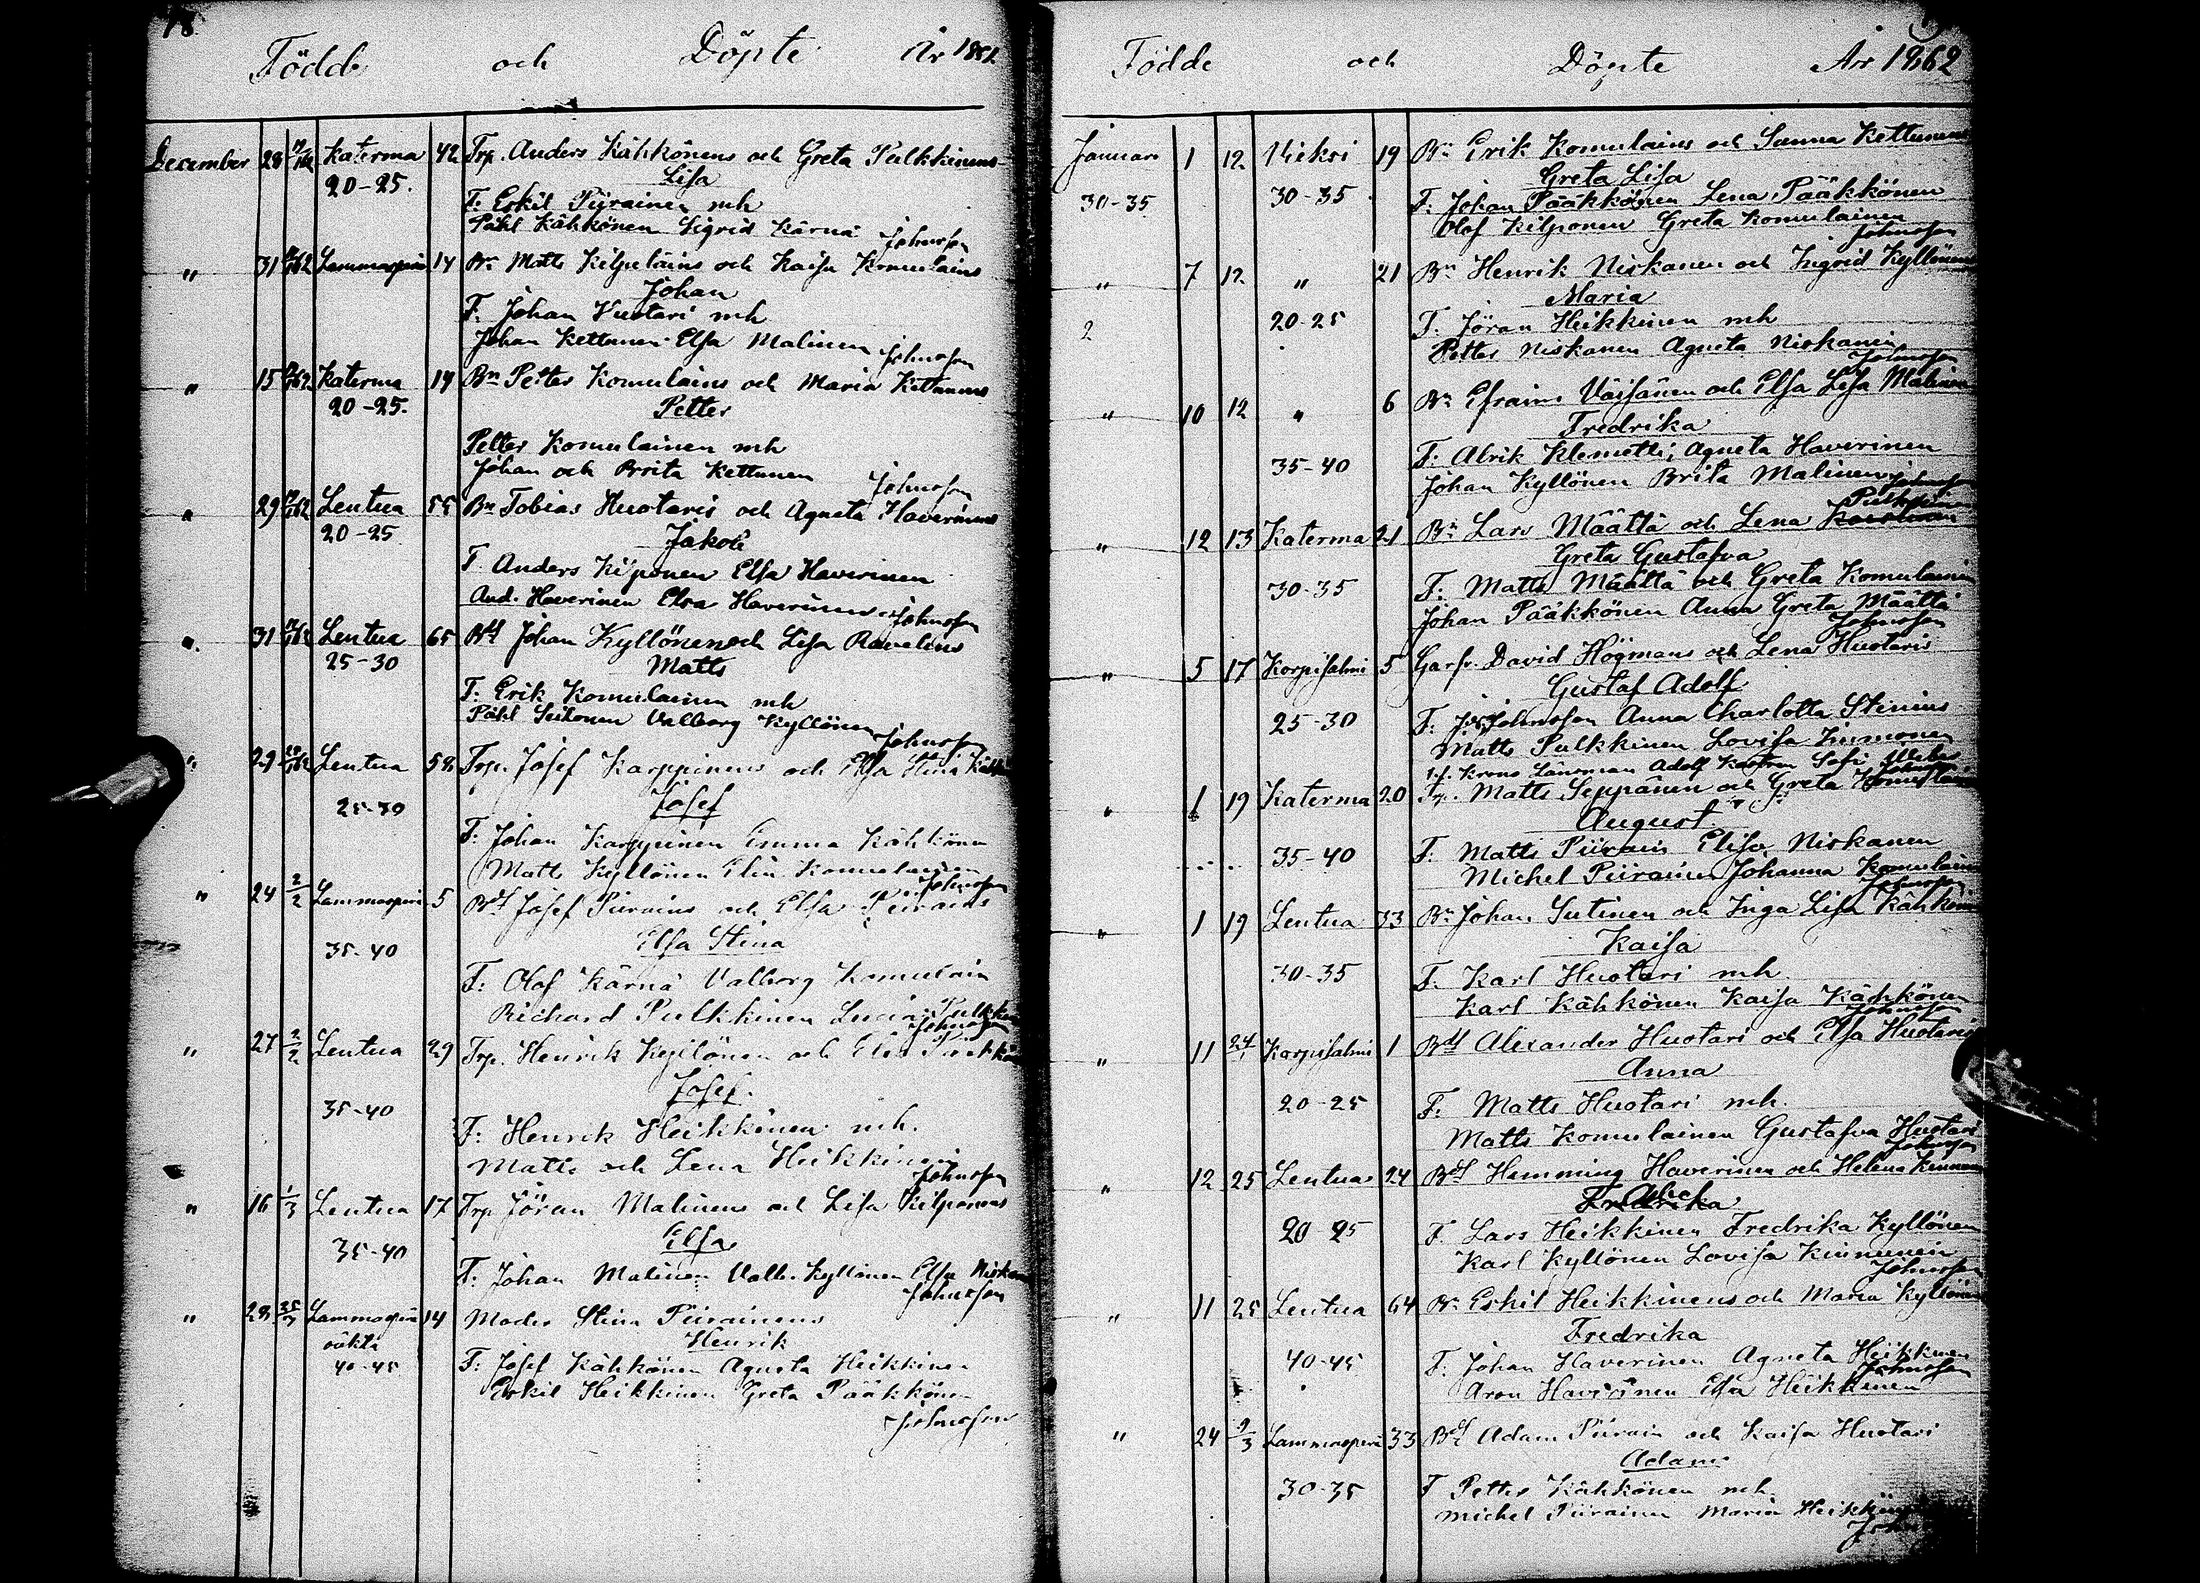 78
Födde och Döpte År 1861
December 28 Katerma 42 Trp. Anders Kähkönens och Greta Pulkkinens
20-25. Lisa
F: Eskil Piirainen mh
Påhl Kähkönen Sigrid Kärnä Johnsson
" 31 Lammasperä 14 Bn Matts Kilpeläins och Kaisa Komulains
Johan
F: Johan Huotari mh
Johan Kettunen Elsa Malinen Johnsson
" 15 Katerma 19 Bn Petter Komulains och Maria Kettunens
20-25. Petter
Petter Komulainen mh
Johan och Brita Kettunen Johnsson
" 29 Lentua 55 Bn Tobias Huotaris och Agneta Haverinens
20-25 Jakob
F. Anders Kilponen Elsa Haverinen
And. Haverinen Elsa Haverinen Johnsson
" 31 Lentua 65 Johan Kyllönen och Lisa
25-30 Matts
F: Erik Komulainen mh
Påhl Valborg Kyllönen Johnsson
" 29 Lentua 58 Trp. Josef Karppinens och Elsa Stina
25-30 Josef
F: Johan Karppinen Emma Kähkönen
Matts Kyllönen Elin Komulainen
Johnsson
" 24 2/2 Lammasperä 5 Josef Piirains och Elsa Piirains
35-40 Elsa Stina
F: Olof Kärnä Valborg Komulain
Richard Pulkkinen Lucia Pulkkin
Johnsson
" 27 2/2 Lentua 29 Trp. Henrik Kyllönen och
35-40 Josef.
F: Henrik Heikkinen mh.
Matts och Lena Heikkinen
Johnsson
" 16 1/3 Lentua 17 Trp Jöran Malinens och Lisa Kilponens
35-40 Elsa
F: Johan Malinen Valb. Kyllönen Elsa
Johnsson
" 28 Lammasperä 14 Moder Stina Piirainens
oäkta Henrik
40-45 F: Josef Kähkönen Agneta Heikkinen
Eskil Heikkinen Greta Pääkkönen
Johnsson
Födde och Döpte År 1862
Januari 1 12 Wieksi 19 Bn Erik Komulains och Sanna Kettunens
30-35 30-35 Greta Lisa
F: Johan Pääkkönen Lena Pääkkönen
Olof Kilponen Greta Komulainen
Johnsson
" 7 12 " 21 Bn Henrik Niskanen och Ingrid Kyllönens
Maria
2 20-25 F: Jöran Heikkinen mh
Petter Niskanen Agneta Niskanen
Johnsson
" 10 12 " 6 Bn Efraim Väisänen och Elsa Lisa Malinen
Fredrika
35-40 F: Alrik Klemetti, Agneta Haverinen
Johan Kyllönen Brita Malinen Johnsson
" 12 13 Katerma 21 Bn Lars Määttä och Lena
Greta Gustafva
30-35 F: Matts Määttä och Greta Komulainen
Johan Pääkkönen Anna Greta Määttä
Johnsson
" 5 17 Korpisalmi 5 Garfv. David Högmans och Lena Huotaris
Gustaf Adolf
25-30 F: Johnsson Anna Charlotta Stenius
Matts Pulkkinen Lovisa Immonen
Krono Länsman Adolf Sofi
" 1 19 Katerma 20 Trp. Matts Seppänen och Greta Komulain
August
35-40 F: Matts Piirain Elisa Niskanen
Michel Piirainen Johanna Komulainen
Johnsson
" 1 19 Lentua 33 Bn Johan Sutinen och Inga Lisa Kähkönen
Kaisa
30-35 F. Karl Huotari mh
Karl Kähkönen Kaisa Kähkönen
Johnsson
" 11 24 Korpisalmi 1 Alexander Huotari och Elsa Huotaris
Anna
20-25 F: Matts Huotari mh.
Matts Komulainen Gustafva Huotari
Johnsson
" 12 25 Lentua 24 Hemming Haverinen och Helena Kinnunen
Fredrika
20-25 F. Lars Heikkinen Fredrika Kyllönen
Karl Kyllönen Lovisa Kinnunen
Johnsson
" 11 25 Lentua 64 Bn Eskil Heikkinens och Maria Kyllönen
Fredrika
40-45 F. Johan Haverinen Agneta Heikkinen
Aron Haverinen Elsa Heikkinen
Johnsson
" 24 9/3 Lammasperä 33 Adam Piirain och Kaisa Huotari
Adam
30-35 F Petter Kähkönen mh
Michel Piirainen Maria